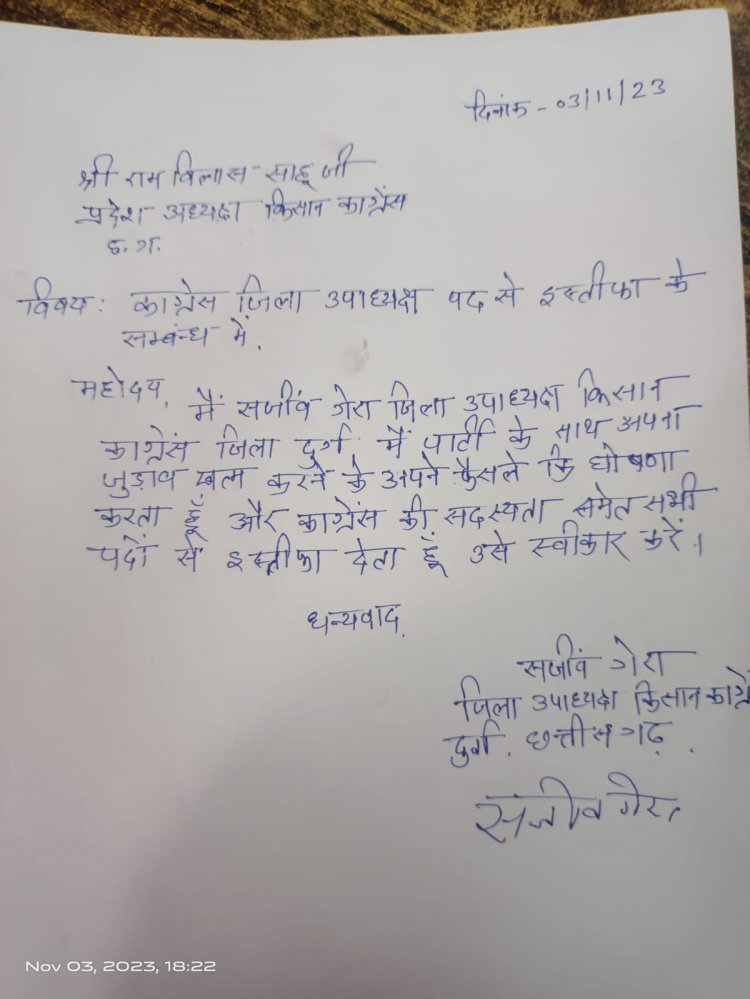 दिनांक - 03/11/23
श्री राम विलास साहू जी
प्रदेश अध्यक्ष किसान कांग्रेंस
छ. ग.
विषय: कांग्रेस जिला उपाध्यक्ष पद से इस्तीफा के
सम्बंध में.
महोदय,
मैं सजीवं गेरा जिला उपाध्यक्ष किसान
कांग्रेंस जिला दुर्ग, मैं पार्टी के साथ अपना
जुड़ाव खत्म करने के अपने फैसले कि घोषणा
करता हूँ और कांग्रेंस की सदस्यता समेत सभी
पदों से इस्तीफा देता हूँ उसे स्वीकार करें।
धन्यवाद,
सजीवं गेरा
जिला उपाध्यक्ष किसान कांग्रें
दुर्ग. छत्तीसगढ़.
संजीव गेरा
Nov 03, 2023, 18:22